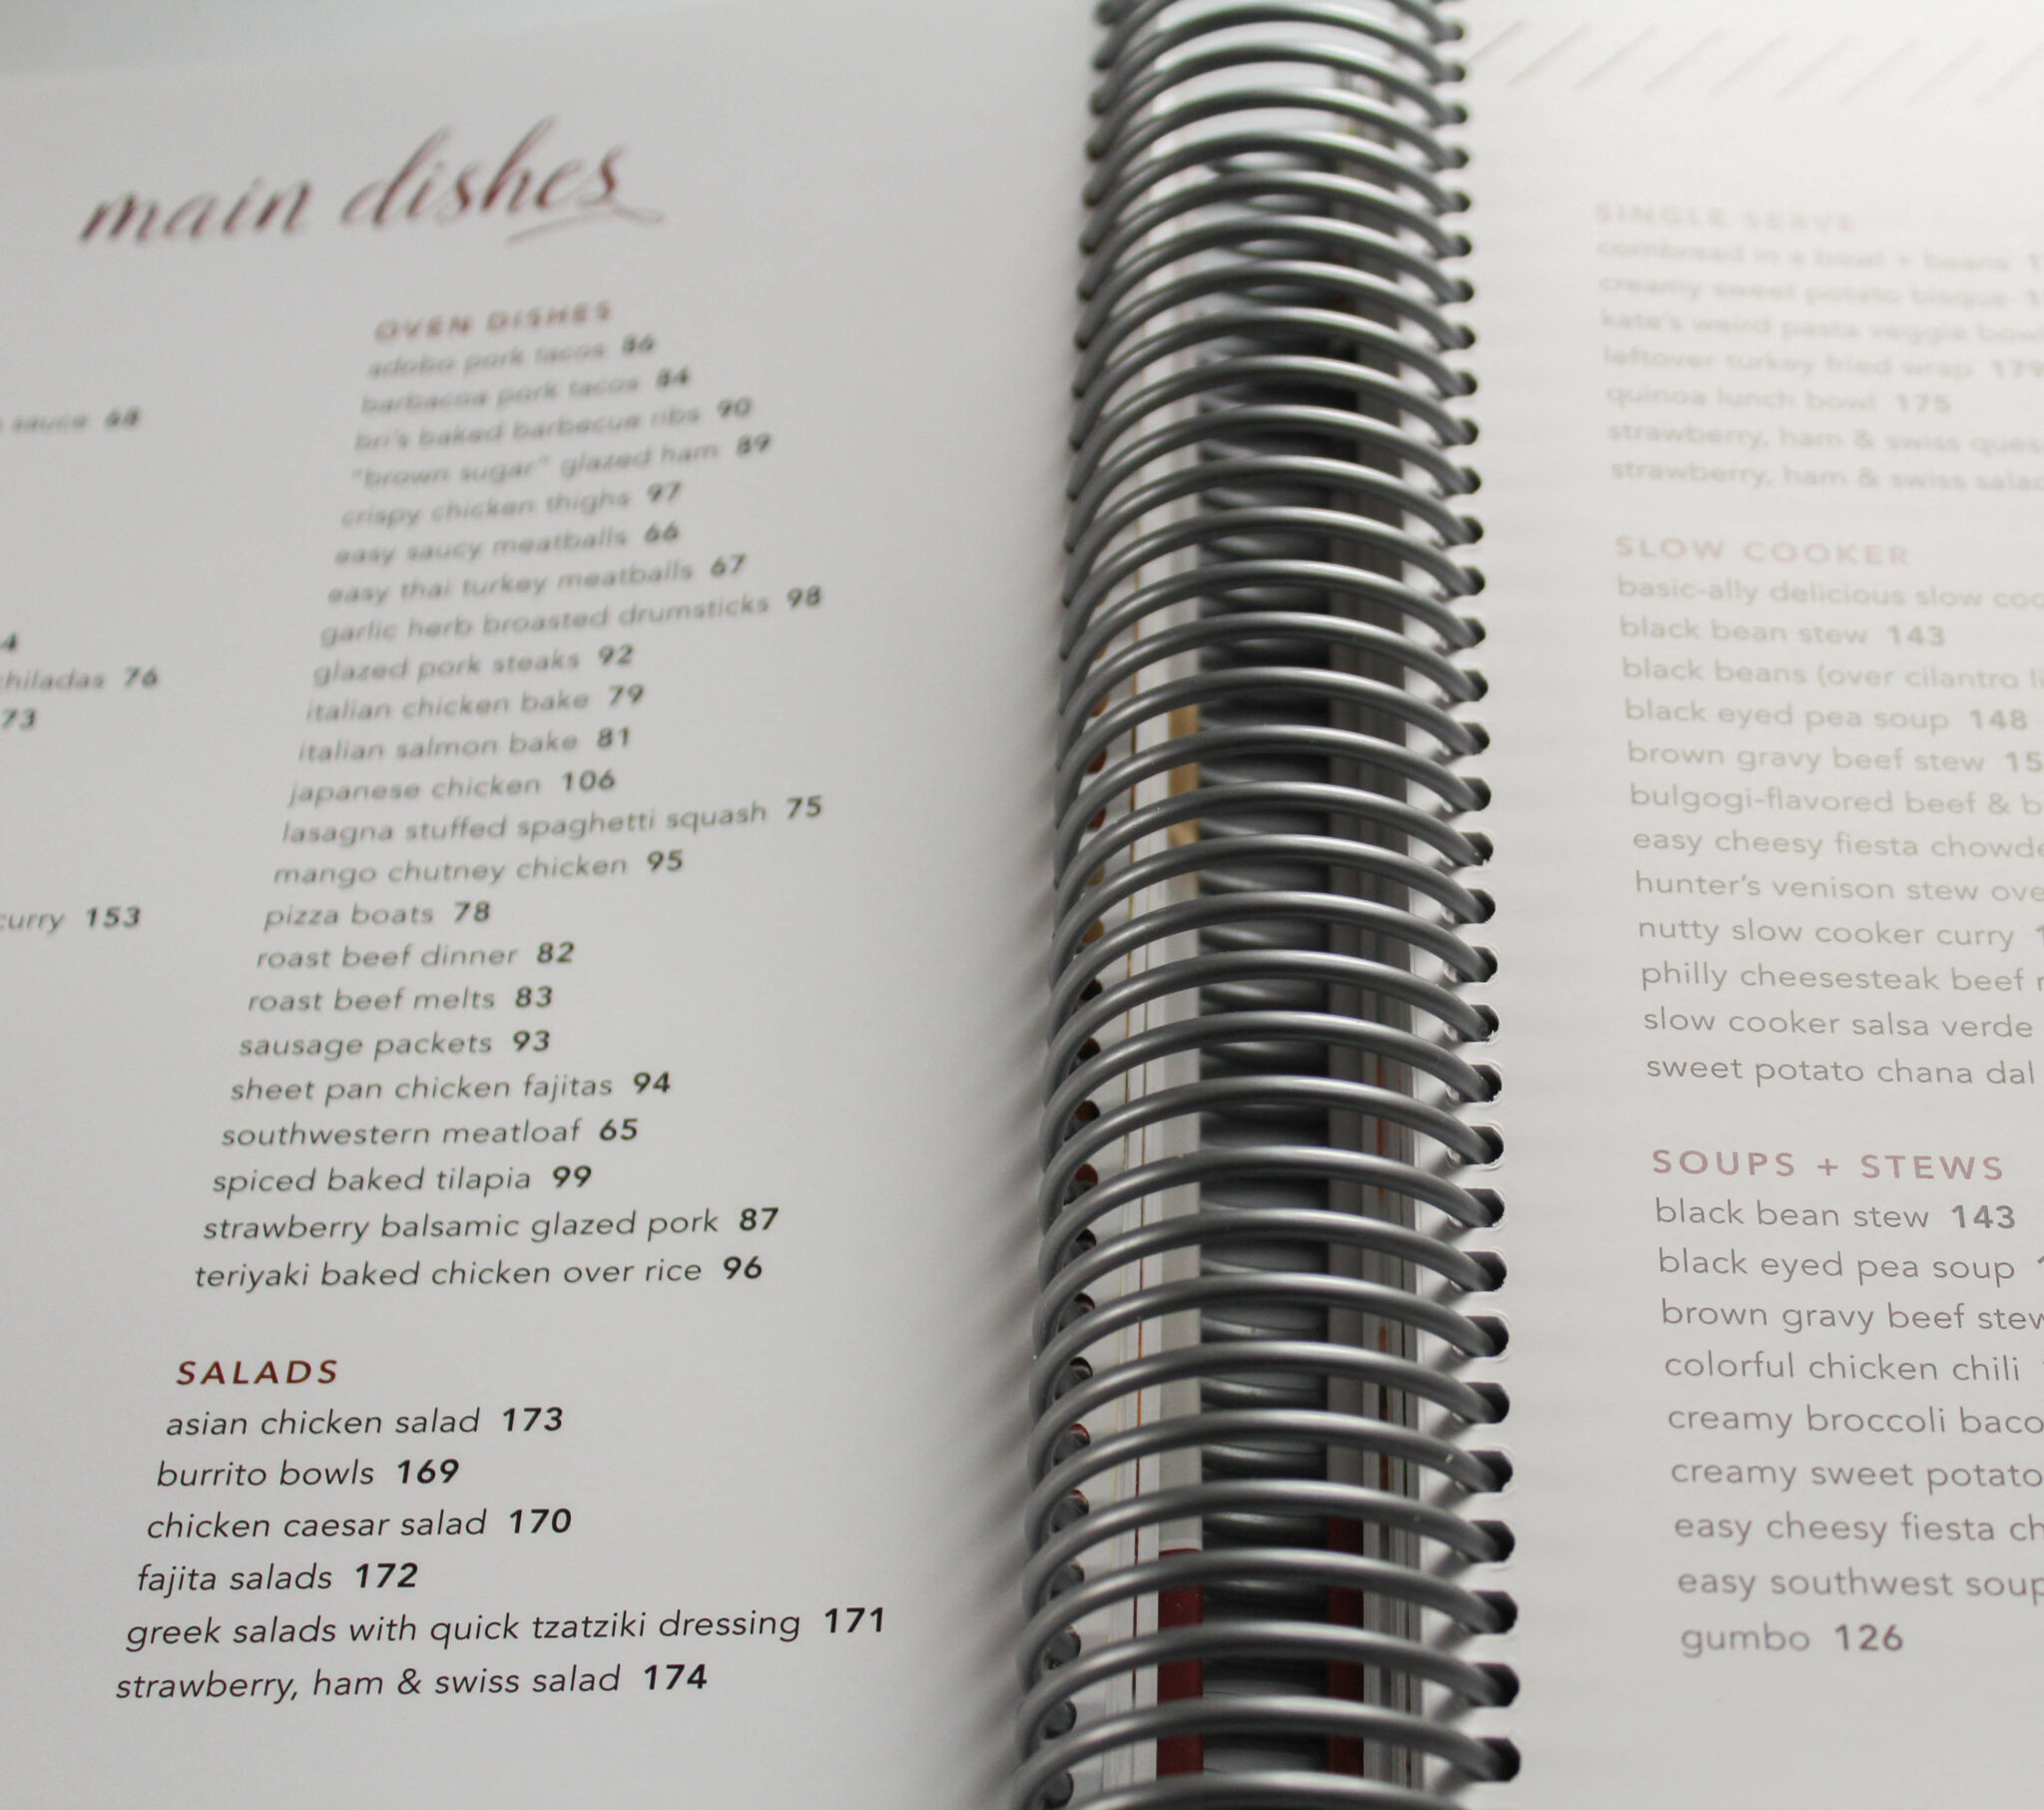 main dishes
sauce 68
4
hiladas 76
73
curry 153
OVEN DISHES
adobo pork tacos 86
barbacoa pork tacos 84
bri's baked barbecue ribs 90
"brown sugar" glazed ham 89
crispy chicken thighs 97
easy saucy meatballs 66
easy thai turkey meatballs 67
garlic herb broasted drumsticks 98
glazed pork steaks 92
italian chicken bake 79
italian salmon bake 81
japanese chicken 106
lasagna stuffed spaghetti squash 75
mango chutney chicken 95
pizza boats 78
roast beef dinner 82
roast beef melts 83
sausage packets 93
sheet pan chicken fajitas 94
southwestern meatloaf 65
spiced baked tilapia 99
strawberry balsamic glazed pork 87
teriyaki baked chicken over rice 96
SALADS
asian chicken salad 173
burrito bowls 169
chicken caesar salad 170
fajita salads 172
greek salads with quick tzatziki dressing 171
strawberry, ham & swiss salad 174
SINGLE SERVE
cornbread in a bowl + beans
creamy sweet potato bisque
kate's weird pasta veggie bow
leftover turkey fried wrap 179
quinoa lunch bowl 175
strawberry, ham & swiss ques
strawberry, ham & swiss salad
SLOW COOKER
basic-ally delicious slow coo
black bean stew 143
black beans (over cilantro li
black eyed pea soup 148
brown gravy beef stew 15
bulgogi-flavored beef & b
easy cheesy fiesta chowde
hunter's venison stew ove
nutty slow cooker curry 1
philly cheesesteak beef r
slow cooker salsa verde
sweet potato chana dal
SOUPS + STEWS
black bean stew 143
black eyed pea soup 1
brown gravy beef stew
colorful chicken chili
creamy broccoli baco
creamy sweet potato
easy cheesy fiesta ch
easy southwest soup
gumbo 126